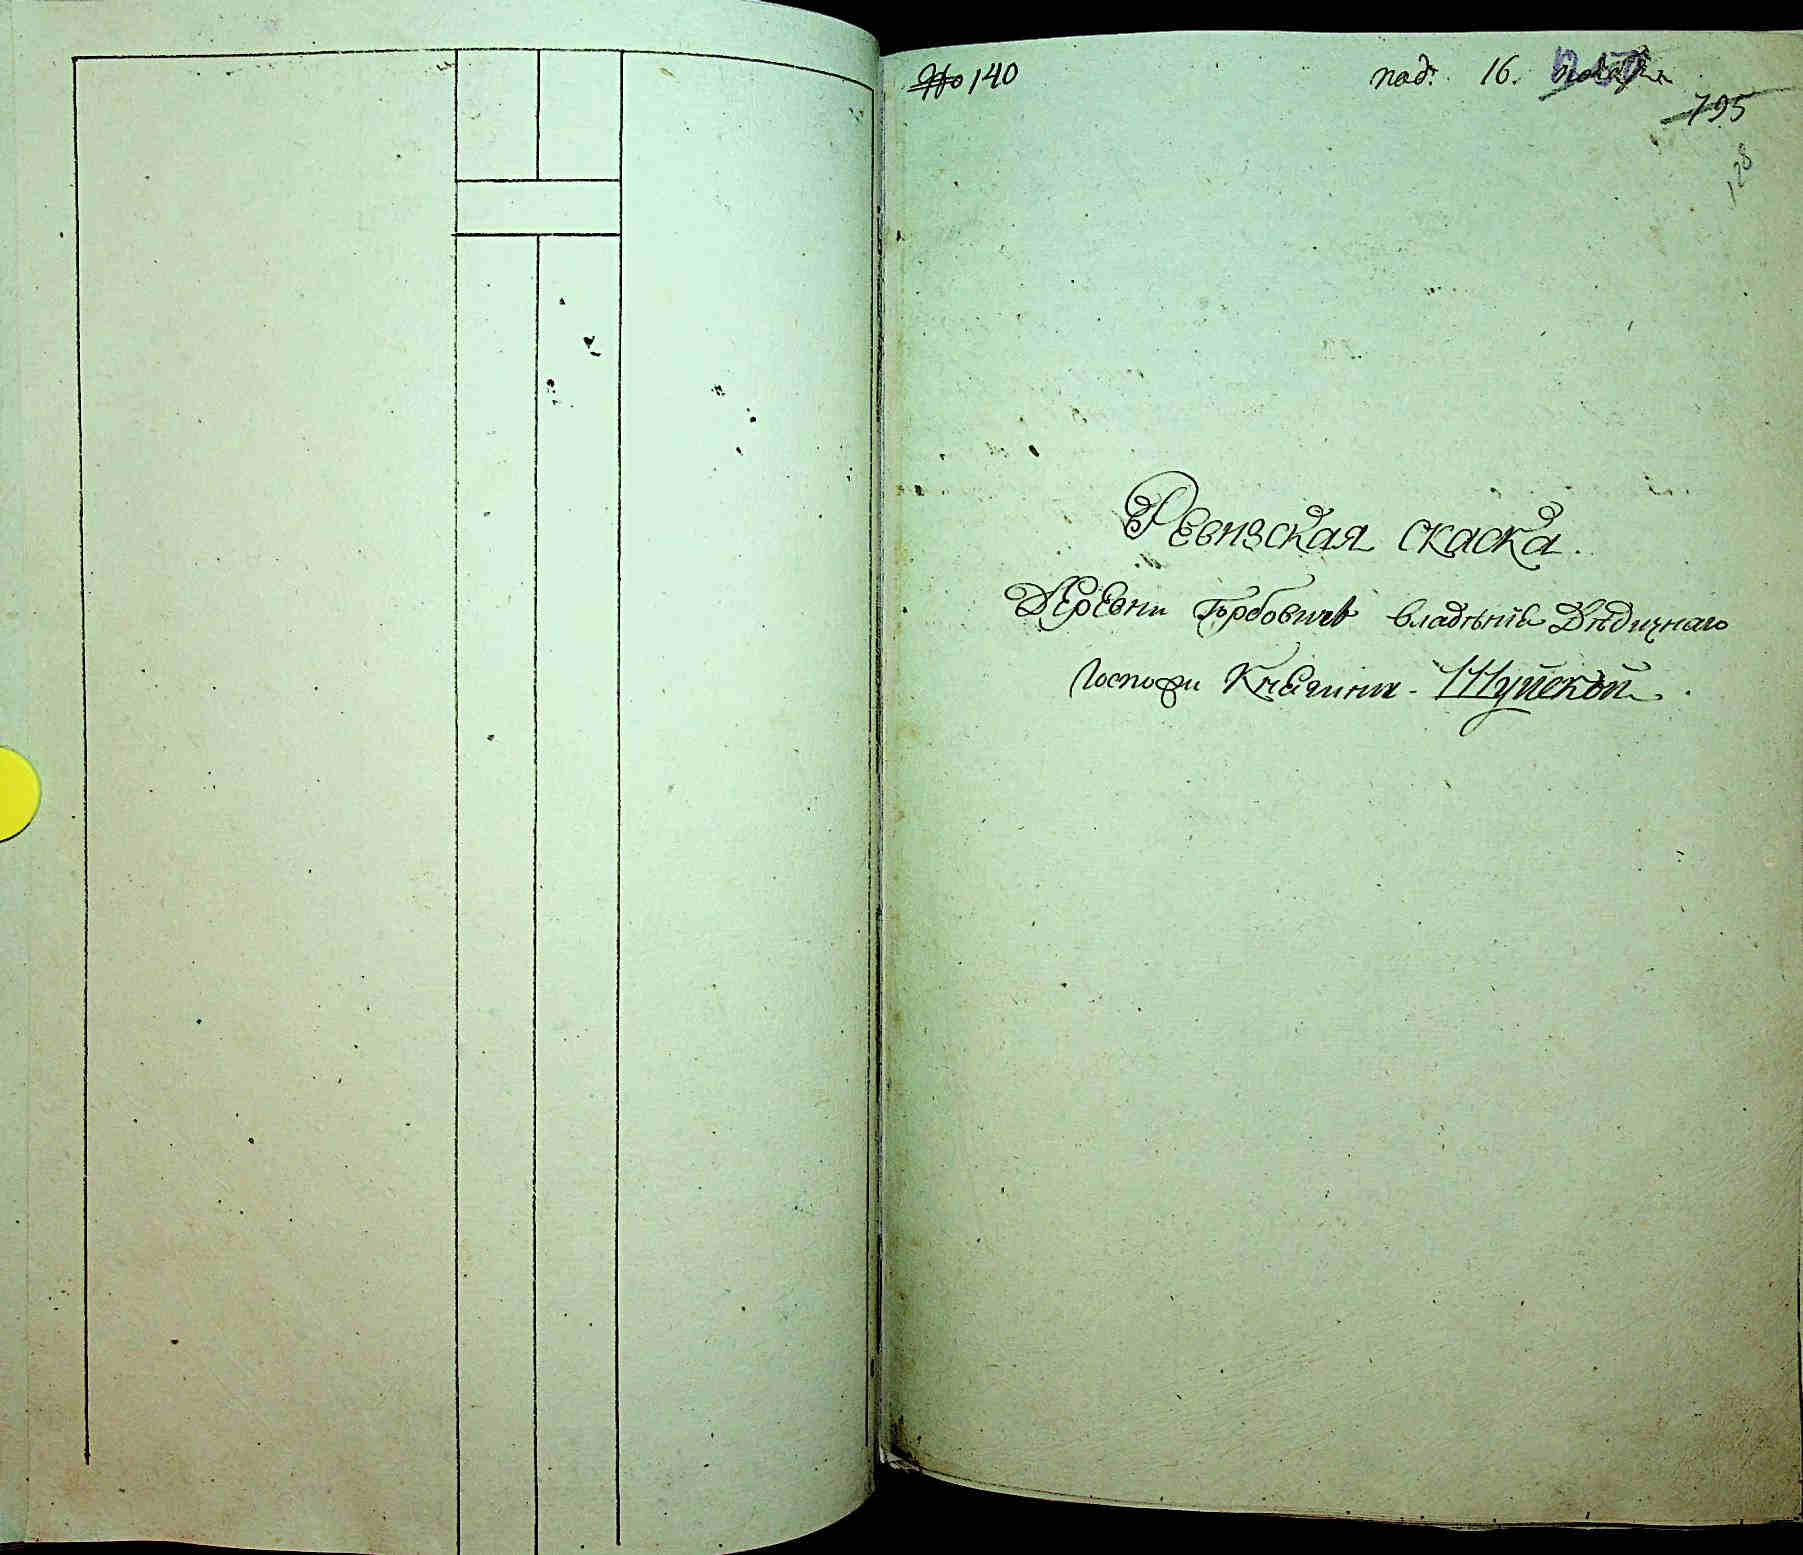 № 140
под: 16.
795
128
Ревизская скаска.
Деревни Горбовичъ владѣнія Дѣдичнаго
Госпожи Княгини Шуйской.